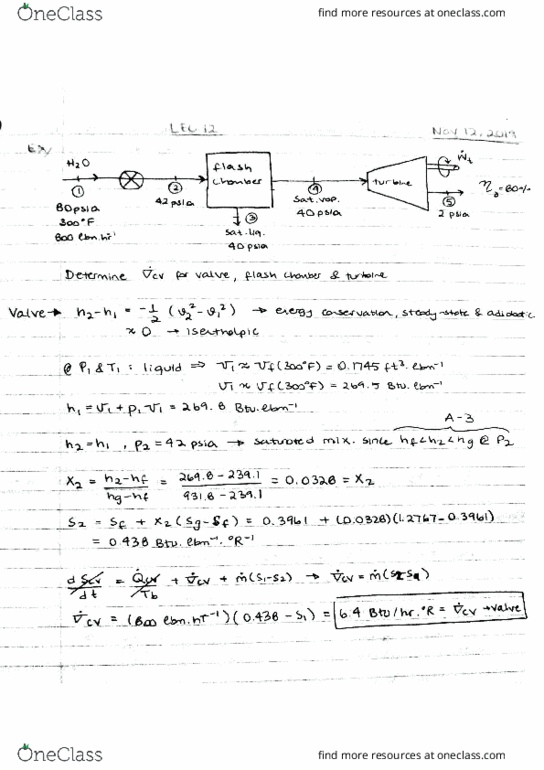 OneClass
find more resources at oneclass.com
LEC 12
Nov 12, 2019
EX/
H₂O
flash chamber
turbine
Ẇt
① ② ③ ④ ⑤
80 psia
300°F
800 lbm.hr⁻¹
42 psia
sat. liq.
40 psia
sat. vap.
40 psia
2 psia
ηs = 80%
Determine σ̇cv for valve, flash chamber & turbine
Valve → h₂-h₁ = -½ (v₂²-v₁²) → energy conservation, steady-state & adiabatic
≈ 0 → isenthalpic
@ P₁ & T₁ : liquid ⇒ v₁ ≈ vf (300°F) = 0.1745 ft³. lbm⁻¹
u₁ ≈ uf (300°F) = 269.5 Btu. lbm⁻¹
h₁ = u₁ + p₁ v₁ = 269.8 Btu. lbm⁻¹
A-3
h₂ = h₁ , P₂ = 42 psia → saturated mix. since hf < h₂ < hg @ P₂
x₂ = h₂-hf / hg-hf = 269.8 - 239.1 / 931.8 - 239.1 = 0.0328 = x₂
s₂ = sf + x₂ (sg-sf) = 0.3961 + (0.0328)(1.2767-0.3961)
= 0.438 Btu. lbm⁻¹. °R⁻¹
dScv/dt = Q̇cv/Tb + σ̇cv + ṁ(s₁-s₂) → σ̇cv = ṁ(s₂-s₁)
σ̇cv = (800 lbm.hr⁻¹)(0.438 - s₁) = 6.4 Btu/hr.°R = σ̇cv, valve
OneClass
find more resources at oneclass.com